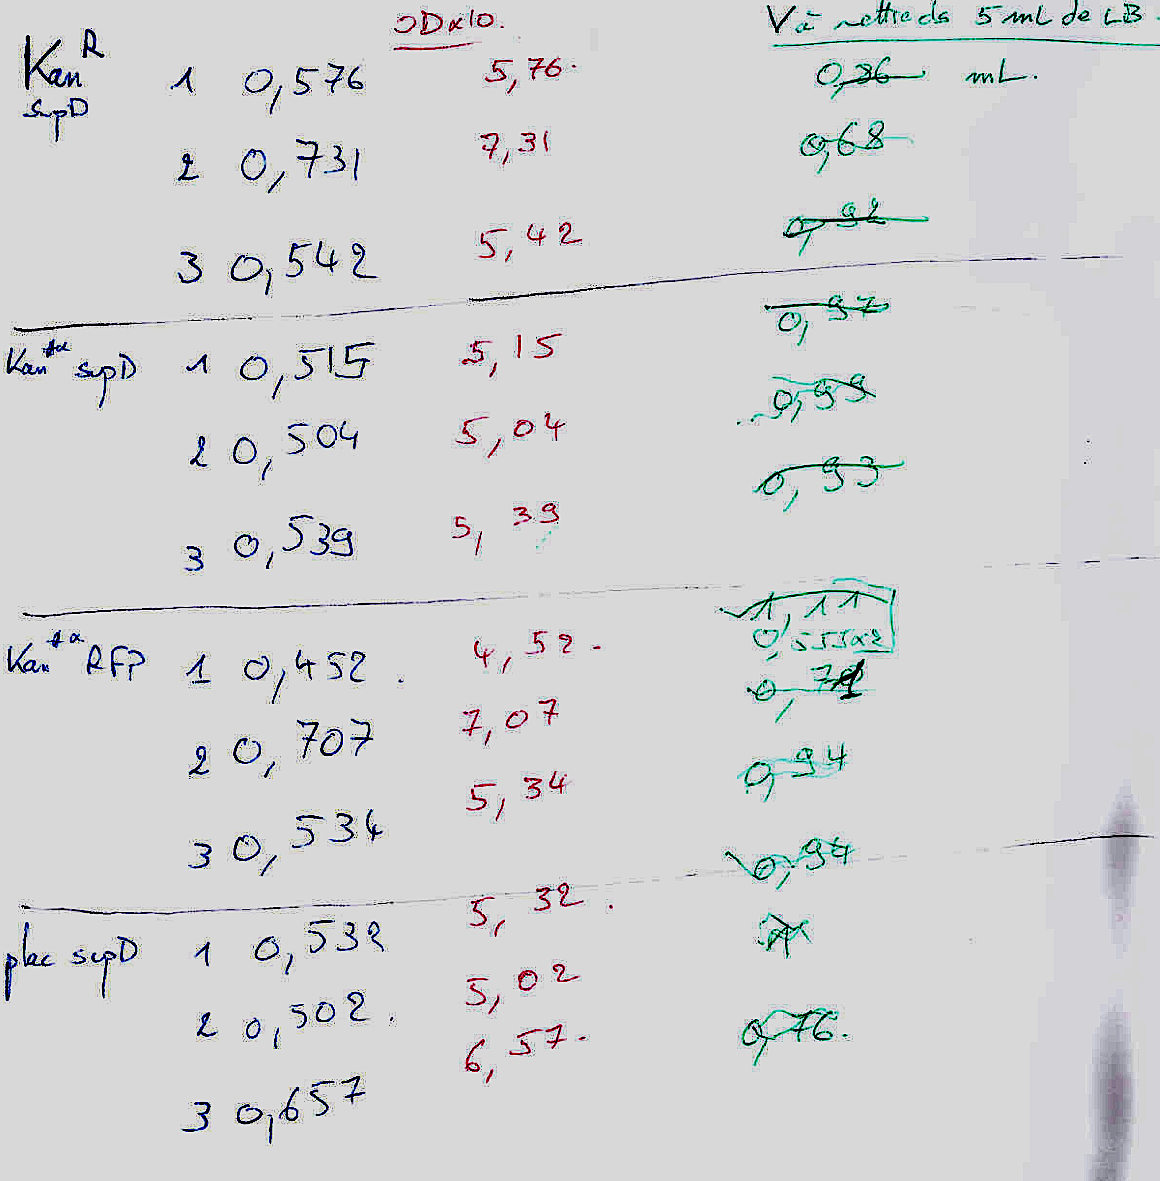 ODx10. V à mettre ds 5 mL de LB
Kan R supD 1 0,576 5,76. 0,86 mL.
2 0,731 7,31 0,68
3 0,542 5,42 0,92
0,97
Kan supD 1 0,515 5,15 0,99
2 0,504 5,04 0,93
3 0,539 5,39
1,11
0,555x2
Kan RFP 1 0,452. 4,52. 0,71
2 0,707 7,07 0,94
3 0,534 5,34 0,94
plac supD 1 0,532 5,32.
2 0,502. 5,02 0,76.
3 0,657 6,57.